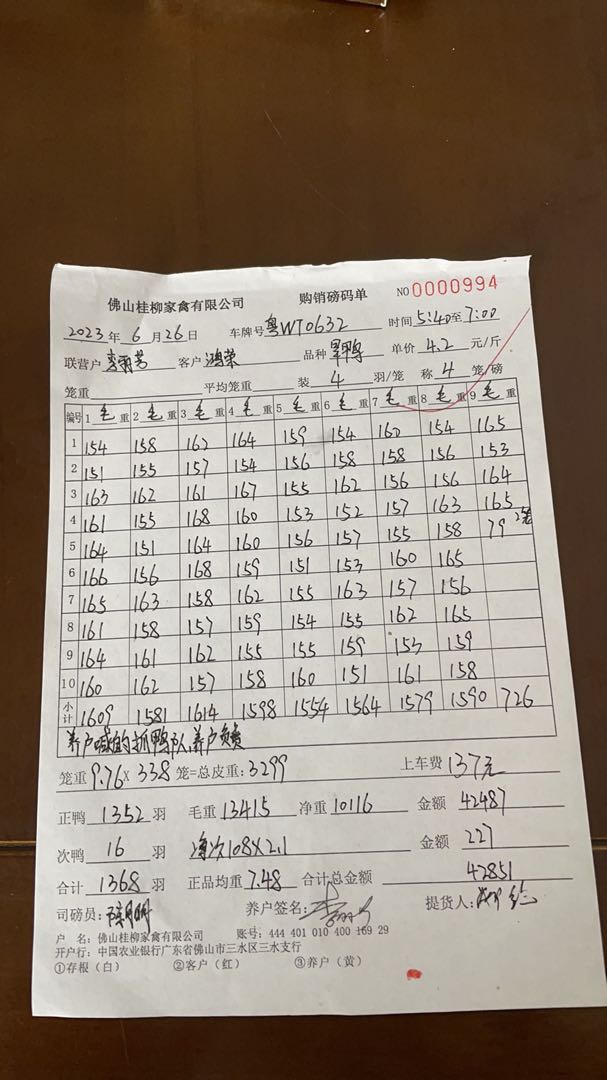 佛山桂柳家禽有限公司 购销磅码单 NO 0000994
2023年 6 月 26 日 车牌号 粤WT0632 时间 5:40至 7:00
联营户 李丽芳 客户 鸿荣 品种 旱鸭 单价 4.2 元/斤
笼重 平均笼重 装 4 羽/笼 称 4 笼/磅
编号 1 毛 重 2 毛 重 3 毛 重 4 毛 重 5 毛 重 6 毛 重 7 毛 重 8 毛 重 9 毛 重
1 154 158 162 164 159 154 160 154 165
2 151 155 157 154 156 158 158 156 153
3 163 162 161 167 155 162 156 156 164
4 161 155 168 160 153 152 157 163 165
5 164 151 164 160 156 157 155 158 79 2笼
6 166 156 168 159 151 153 160 165
7 165 163 158 162 155 163 157 156
8 161 158 157 159 154 155 162 165
9 164 161 162 155 155 159 153 159
10 160 162 157 158 160 151 161 158
小计 1609 1581 1614 1598 1554 1564 1579 1590 726
养户喊的抓鸭队,养户负责
笼重 9.76 X 338 笼=总皮重: 3299 上车费 137元
正鸭 1352 羽 毛重 13415 净重 10116 金额 42487
次鸭 16 羽 108X2.1 金额 227
合计 1368 羽 正品均重 7.48 合计总金额 42851
司磅员: 养户签名: 提货人:
户 名: 佛山桂柳家禽有限公司 账号: 444 401 010 400 169 29
开户行: 中国农业银行广东省佛山市三水区三水支行
①存根（白） ②客户（红） ③养户（黄）